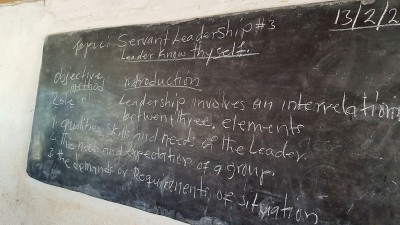 Topic: Servant Leadership #3
13/2/2
Leader know thyself.
Objective introduction
method
Leadership involves an interrelation
between three elements
1. qualities, skills and needs of the Leader.
2. The need and expectation of a group.
3. the demands or Requirements of situation